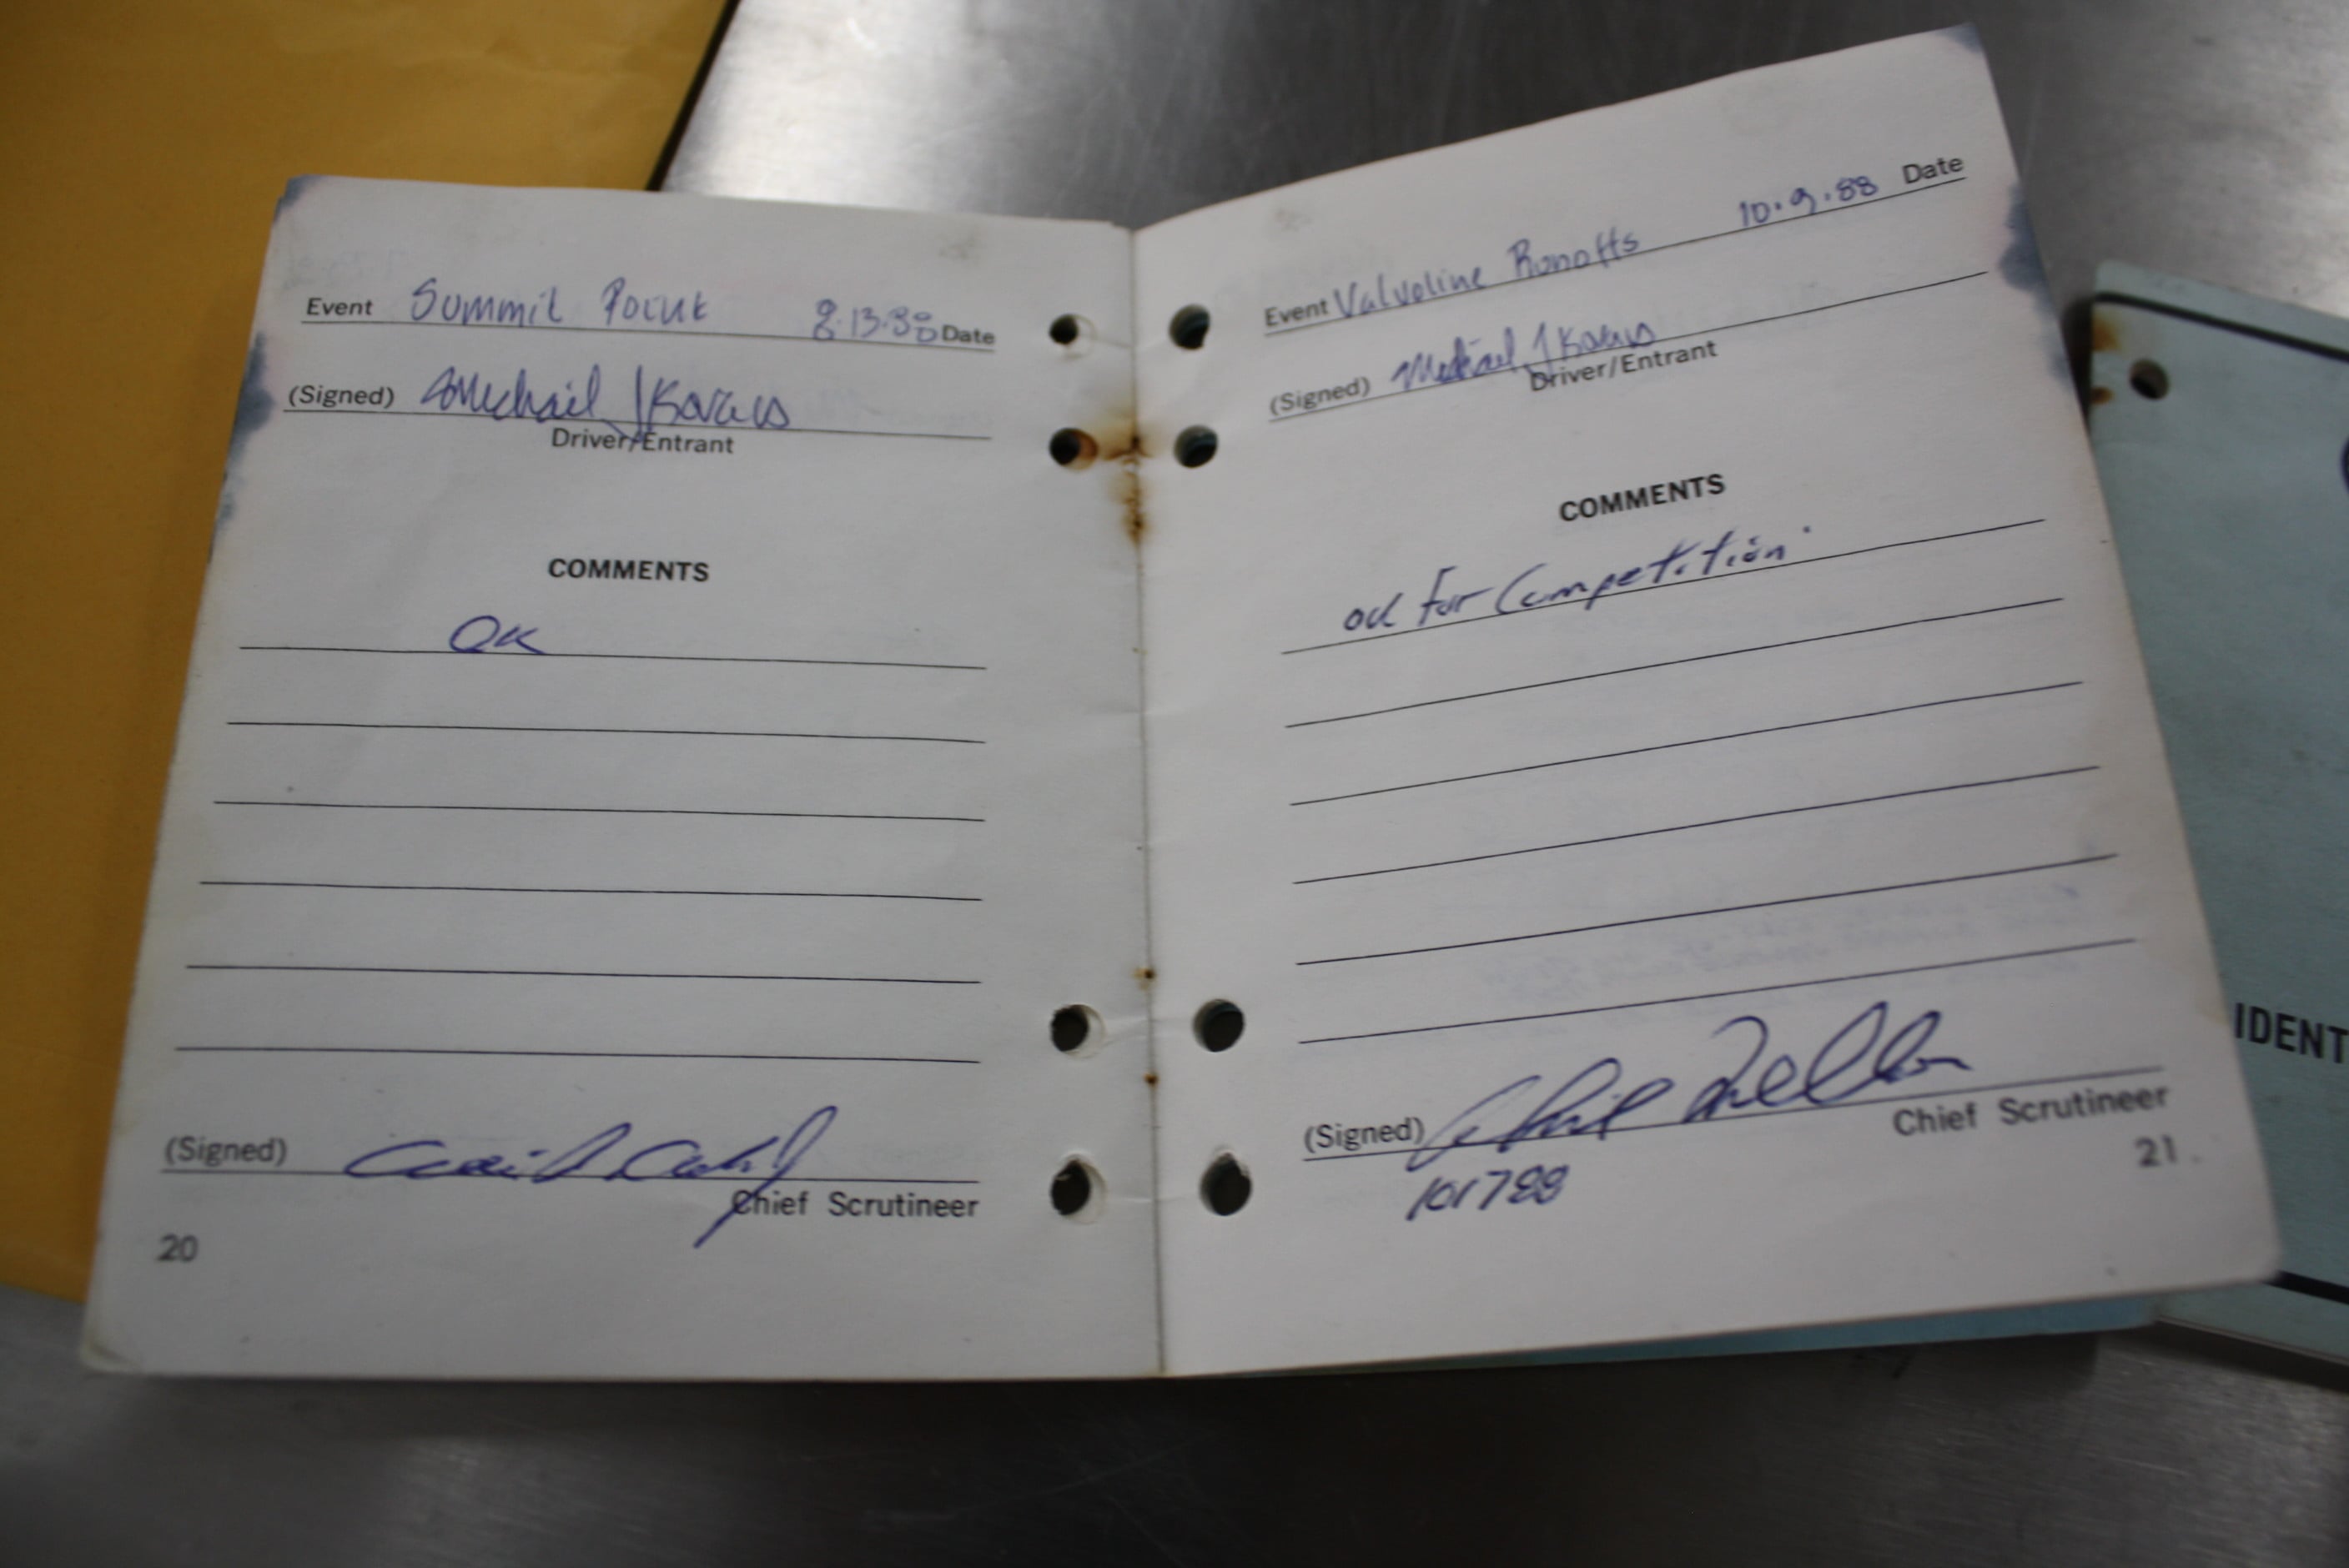 Event Summit Point 8.13.88 Date
(Signed) Michael J Kovacs
Driver/Entrant
COMMENTS
OK
(Signed)
Chief Scrutineer
20
Event Valvoline Runoffs 10.9.88 Date
(Signed) Michael J Kovacs
Driver/Entrant
COMMENTS
ok For Competition.
(Signed)
Chief Scrutineer
101788
21
IDENT